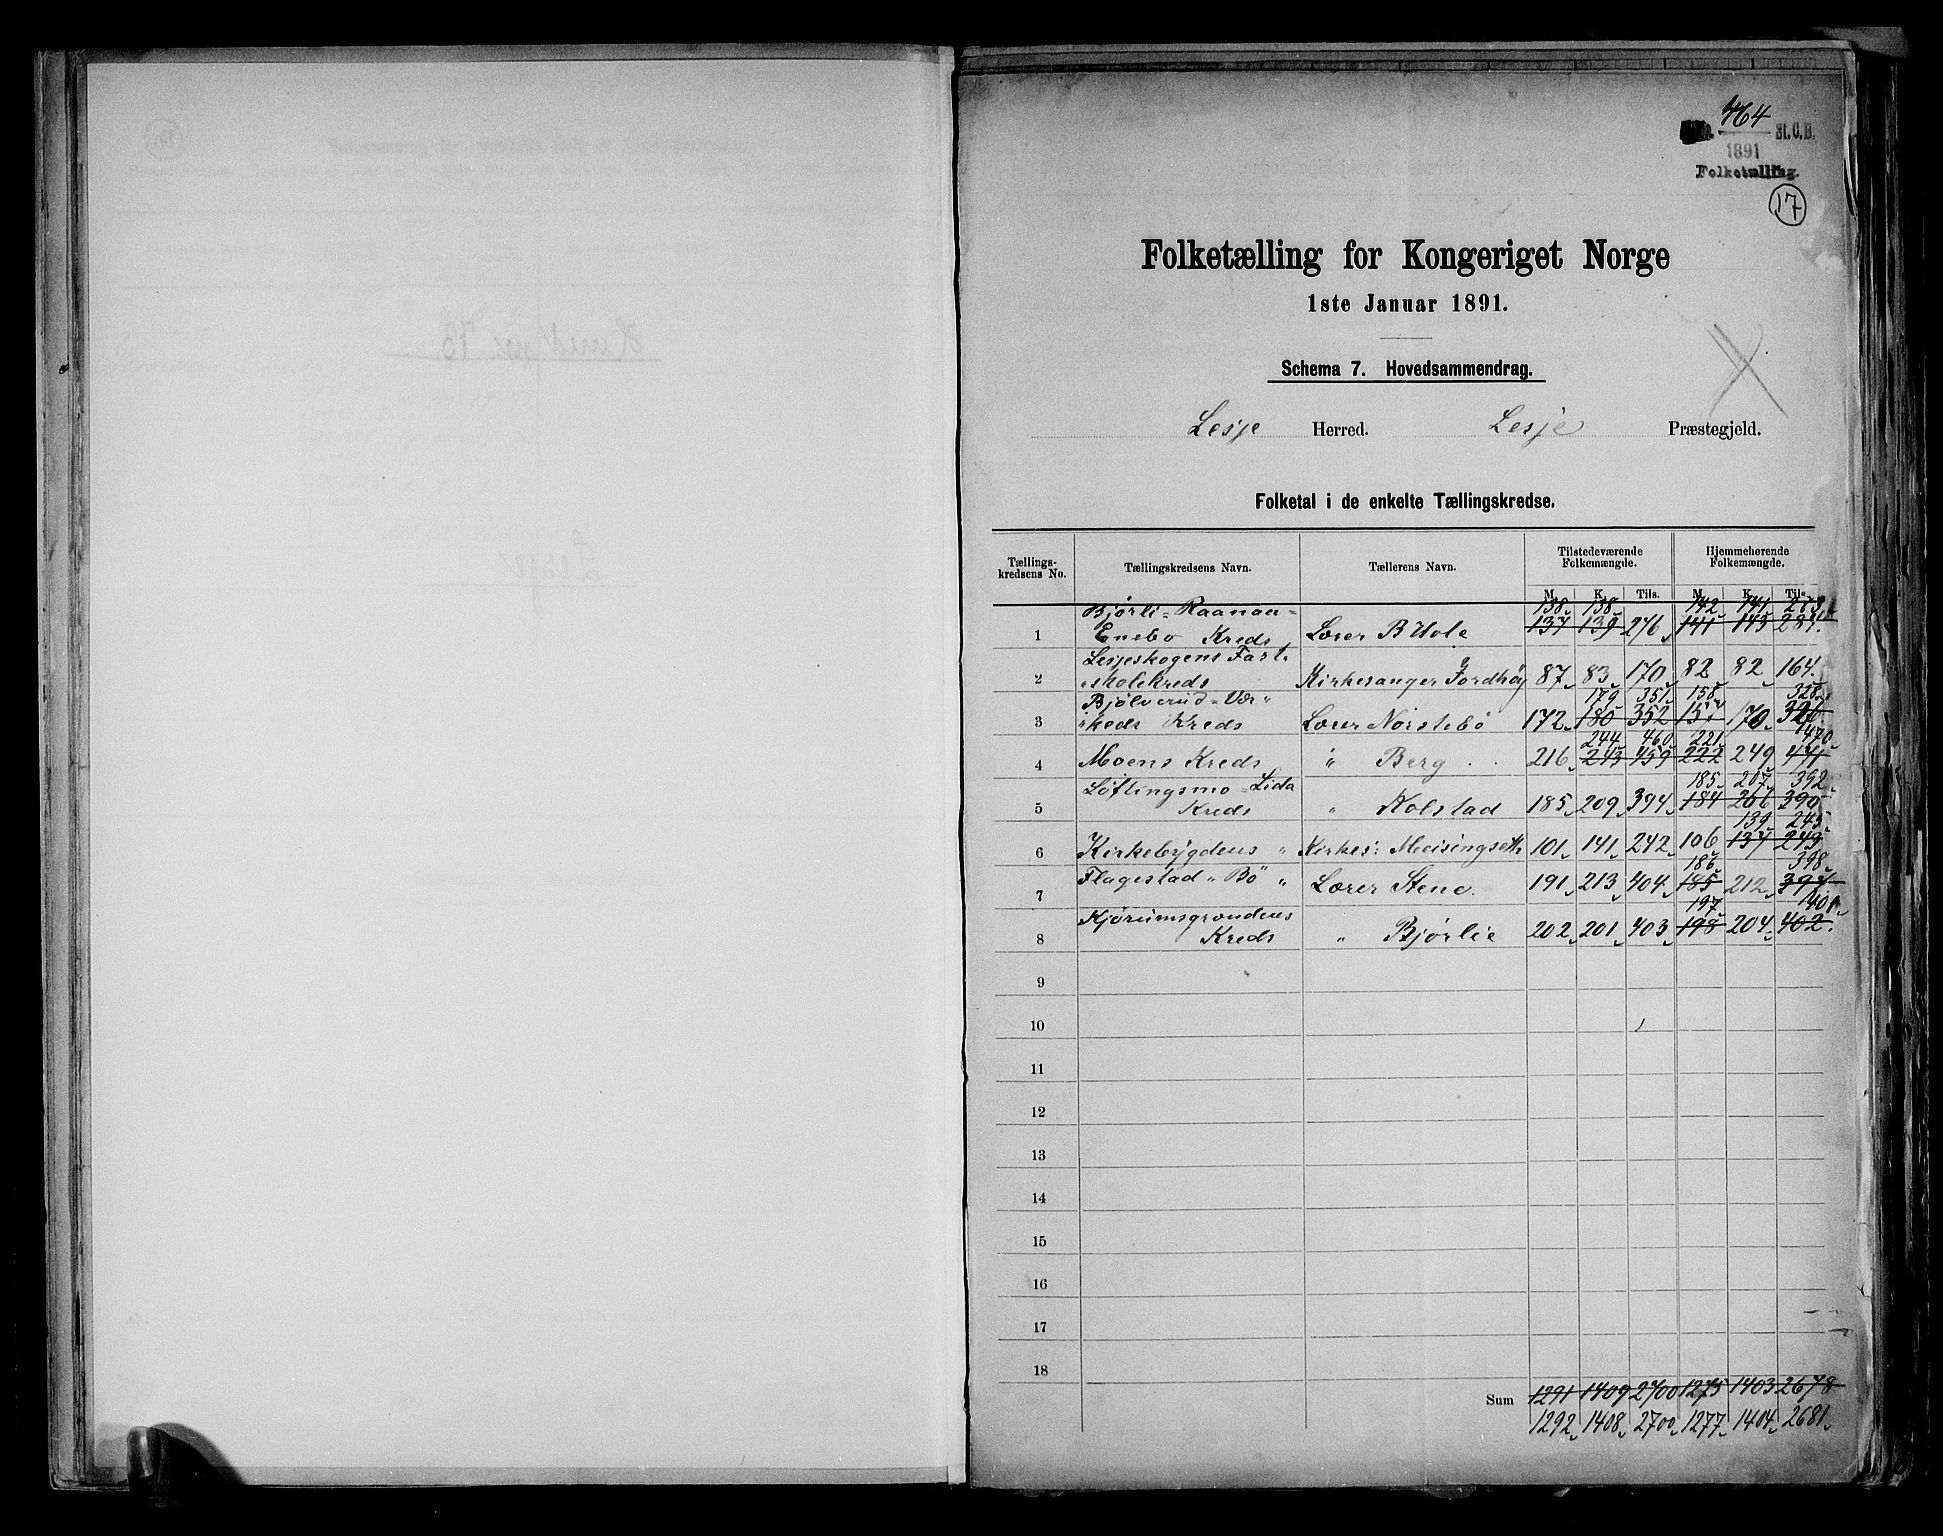 464
St. C. B.
1891
Folketælling.
17
Folketælling for Kongeriget Norge
1ste Januar 1891.
Schema 7. Hovedsammendrag.
Lesje Herred. Lesje Præstegjeld.
Folketal i de enkelte Tællingskredse.
Tællings-kredsens No. Tællingskredsens Navn. Tællerens Navn. Tilstedeværende Folkemængde. Hjemmehørende Folkemængde.
M. K. Tils. M. K. Tils.
Bjørli- Raanaa- 138 138 142 141 283
1 Enebo Kreds Lærer B Hole 137 139 276 141 143 284
Lesjeskogens Fast.
2 skolekreds Kirkesanger Jordhøj 87 83 170 82 82 164
Bjølverud- Vær- 179 351 158 328
3 keds Kreds Lærer Norstebö 172 180 352 157 170
244 460 221 470
4 Moens Kreds " Berg 216 243 459 222 249 471
Løftingsmo- Lida 185 207 392
5 Kreds " Kolstad 185 209 394 184 206 390
139 245
6 Kirkebygdens " Kirkes: Meisingseth 101 141 242 106 137 243
Flagestad " Bö " 186 398
7 Lærer Stene 191 213 404 185 212 397
Kjørumsgrendens 197 401
8 Kreds " Bjørlie 202 201 403 198 204 402
9
10
11
12
13
14
15
16
17
18
Sum 1291 1409 2700 1275 1403 2678
1292 1408 2700 1277 1404 2681